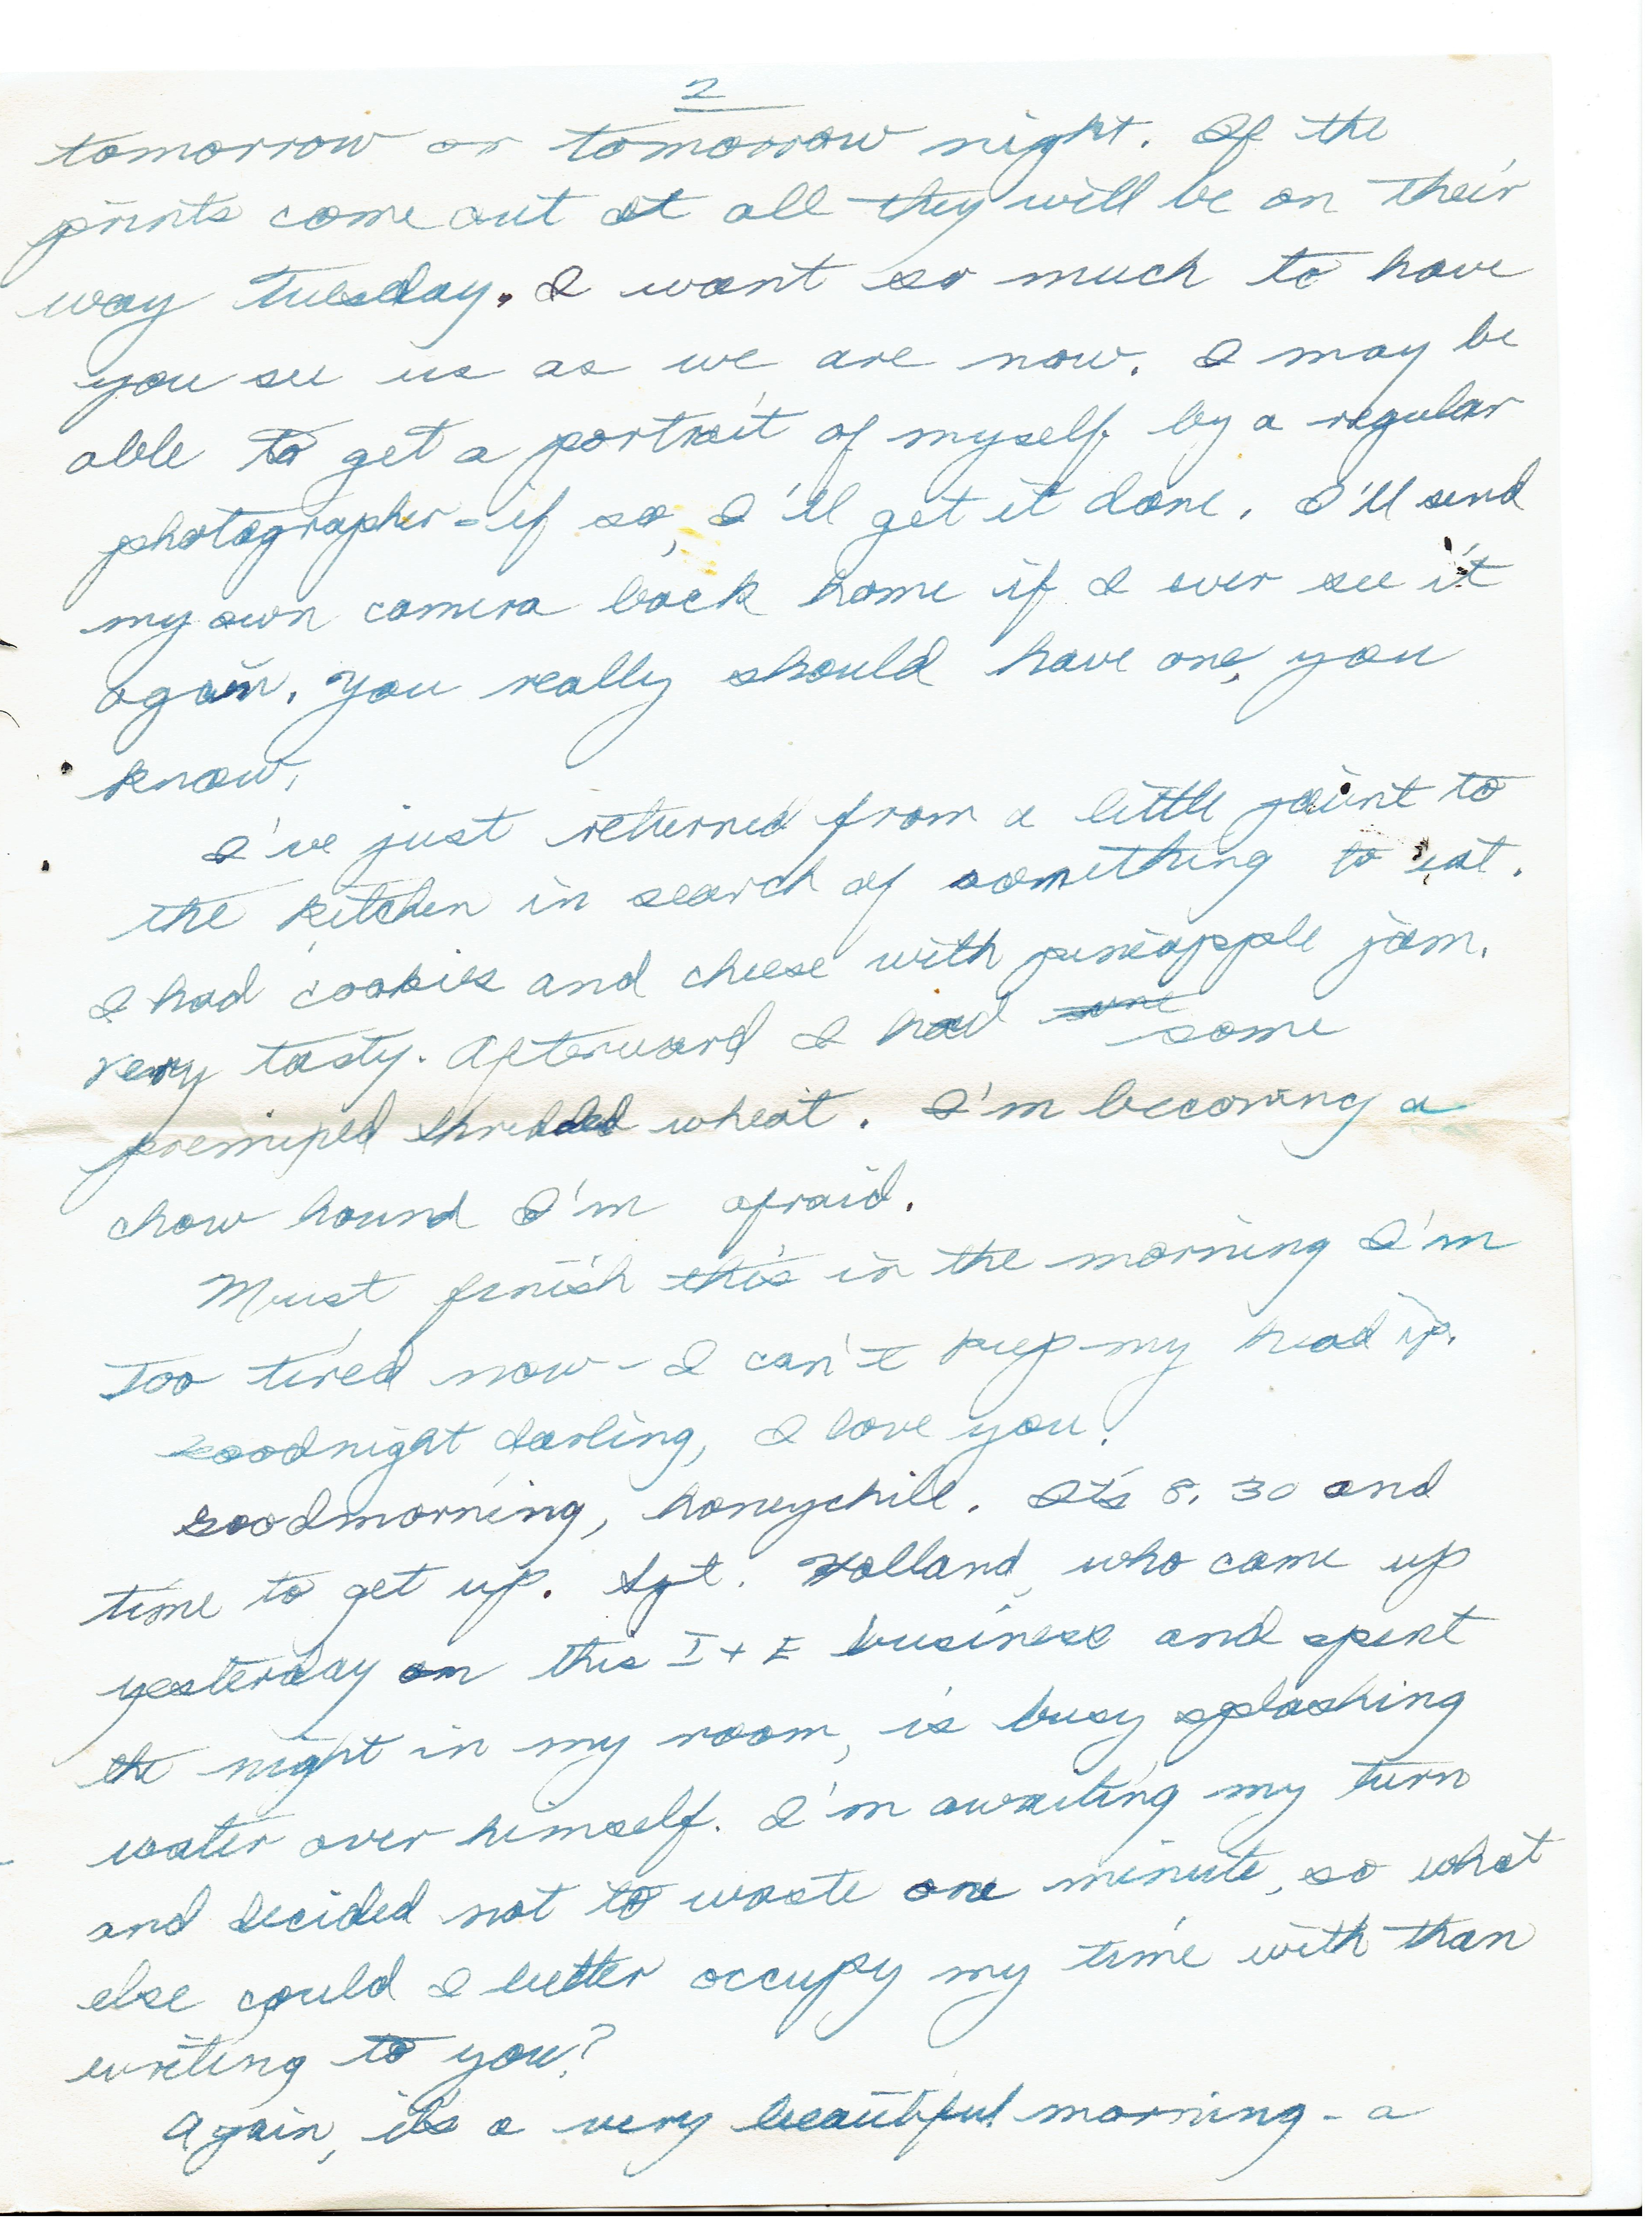 2
tomorrow or tomorrow night. If the
prints come out at all they will be on their
way Tuesday. I want so much to have
you see us as we are now. I may be
able to get a portrait of myself by a regular
photographer - if so, I'll get it done. I'll send
my own camera back home if I ever see it
again. You really should have one, you
know.
I've just returned from a little jaunt to
the kitchen in search of something to eat.
I had cookies and cheese with pineapple jam.
very tasty. Afterward I had some
premixed shredded wheat. I'm becoming a
chow hound I'm afraid.
Must finish this in the morning I'm
too tired now - I can't keep my head up.
Goodnight darling, I love you.
Goodmorning, honeychile. It's 8.30 and
time to get up. Sgt. Holland, who came up
yesterday on this I + E business and spent
the night in my room, is busy splashing
water over himself. I'm awaiting my turn
and decided not to waste one minute, so what
else could I better occupy my time with than
writing to you?
Again, it's a very beautiful morning - a